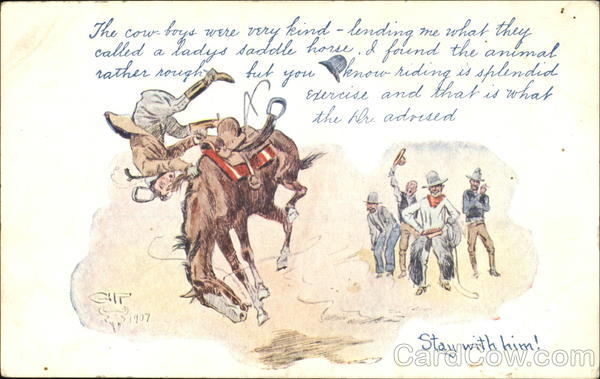 The cow-boys were very kind - lending me what they
called a ladys saddle horse. I found the animal
rather rough, but you know riding is splendid
exercise and that is what
the Dr. advised
CMR
1907
Stay with him!
CardCow.com